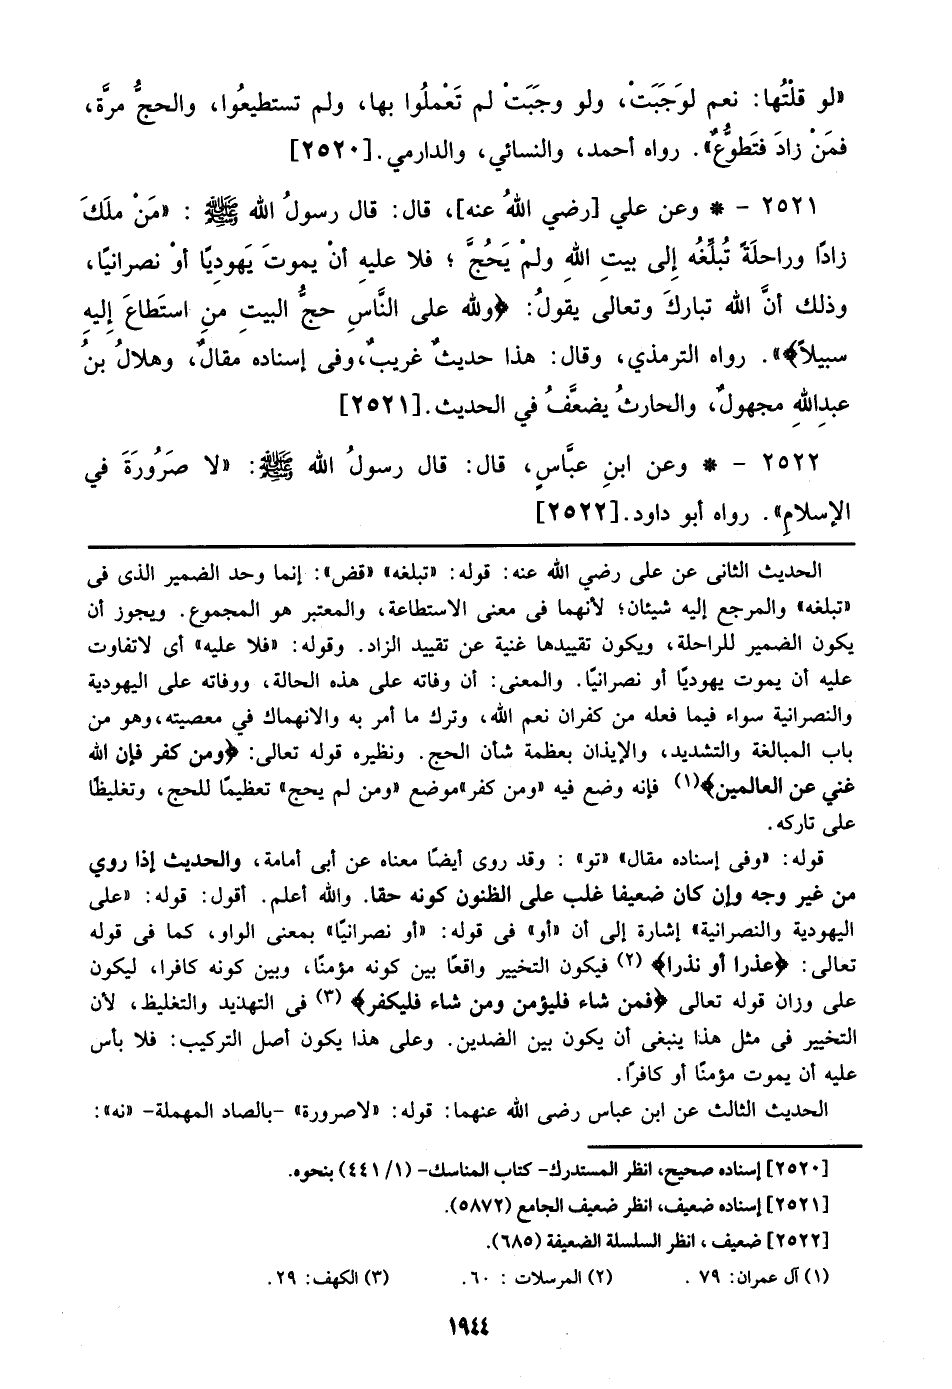 «لو قلْتُها: نعم لوَجَبَتْ، ولو وجَبَتْ لم تَعْملُوا بها، ولم تستطيعُوا، والحجُّ مرَّة،
فمَنْ زادَ فتَطوُّعٌ». رواه أحمد، والنسائي، والدارمي.[٢٥٢٠]
٢٥٢١ – * وعن علي [رضي اللهُ عنه]، قال: قال رسولُ الله ﷺ : «مَنْ ملَكَ
زادًا وراحلَةً تُبلِّغُه إلى بيتِ اللهِ ولمْ يَحُجَّ ؛ فلا عليهِ أنْ يموتَ يَهوديًا أوْ نصرانيًا،
وذلك أنَّ الله تباركَ وتعالى يقولُ: ﴿وللهِ على النَّاسِ حجُّ البيتِ منِ استَطاعَ إليهِ
سبيلاً﴾». رواه الترمذي، وقال: هذا حديثٌ غريبٌ،وفى إسناده مقالٌ، وهلالُ بنُ
عبدِاللهِ مجهولٌ، والحارثُ يضعَّفُ في الحديث.[٢٥٢١]
٢٥٢٢ – * وعن ابنِ عبَّاسٍ، قال: قال رسولُ الله ﷺ: «لا صَرُورَةَ في
الإسلامِ». رواه أبو داود.[٢٥٢٢]
الحديث الثانى عن على رضي الله عنه: قوله: «تبلغه» «قض»: إنما وحد الضمير الذى فى
«تبلغه» والمرجع إليه شيئان؛ لأنهما فى معنى الاستطاعة، والمعتبر هو المجموع. ويجوز أن
يكون الضمير للراحلة، ويكون تقييدها غنية عن تقييد الزاد. وقوله: «فلا عليه» أى لاتفاوت
عليه أن يموت يهوديًا أو نصرانيًا. والمعنى: أن وفاته على هذه الحالة، ووفاته على اليهودية
والنصرانية سواء فيما فعله من كفران نعم الله، وترك ما أمر به والانهماك في معصيته،وهو من
باب المبالغة والتشديد، والإيذان بعظمة شأن الحج. ونظيره قوله تعالى: ﴿ومن كفر فإن الله
غني عن العالمين﴾(١) فإنه وضع فيه «ومن كفر»موضع «ومن لم يحج» تعظيمًا للحج، وتغليظًا
على تاركه.
قوله: «وفى إسناده مقال» «تو» : وقد روى أيضًا معناه عن أبى أمامة، والحديث إذا روي
من غير وجه وإن كان ضعيفا غلب على الظنون كونه حقا. والله أعلم. أقول: قوله: «على
اليهودية والنصرانية» إشارة إلى أن «أو» فى قوله: «أو نصرانيًا» بمعنى الواو، كما فى قوله
تعالى: ﴿عذرا أو نذرا﴾ (٢) فيكون التخيير واقعًا بين كونه مؤمنًا، وبين كونه كافرا، ليكون
على وزان قوله تعالى ﴿فمن شاء فليؤمن ومن شاء فليكفر﴾ (٣) فى التهديد والتغليظ، لأن
التخيير فى مثل هذا ينبغى أن يكون بين الضدين. وعلى هذا يكون أصل التركيب: فلا بأس
عليه أن يموت مؤمنًا أو كافرًا.
الحديث الثالث عن ابن عباس رضى الله عنهما: قوله: «لاصرورة» -بالصاد المهملة- «نه»:
[٢٥٢٠] إسناده صحيح، انظر المستدرك- كتاب المناسك- (١/ ٤٤١) بنحوه.
[٢٥٢١] إسناده ضعيف، انظر ضعيف الجامع (٥٨٧٢).
[٢٥٢٢] ضعيف ، انظر السلسلة الضعيفة (٦٨٥).
(١) آل عمران: ٧٩ . (٢) المرسلات : ٦٠. (٣) الكهف: ٢٩.
١٩٤٤